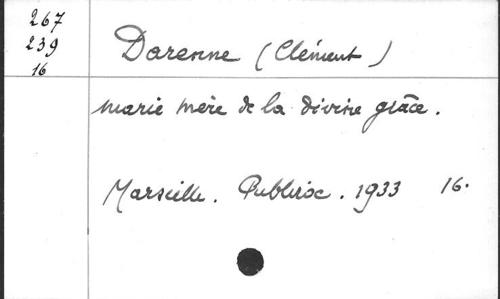 267
239
16
Darenne (Clément)
Marie mère de la divine grâce.
Marseille. Publiroc. 1933 16.